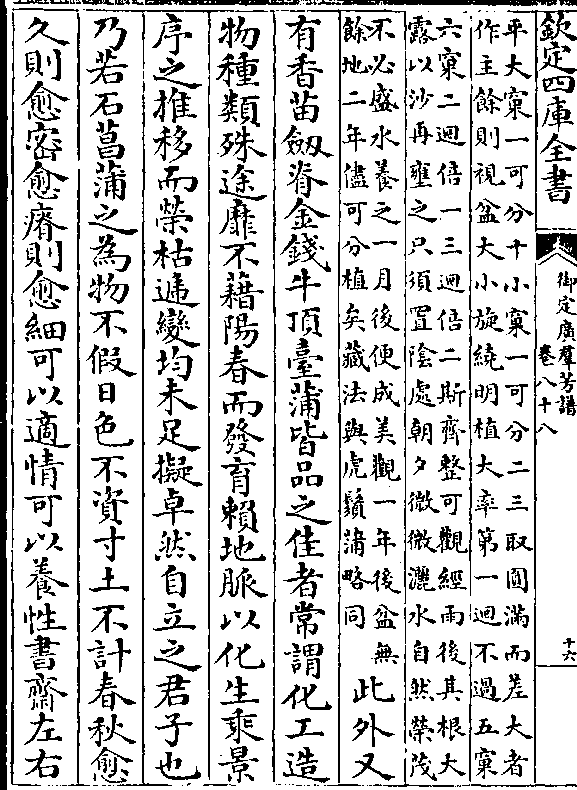 欽定四庫全書
御定廣羣芳譜
卷八十八
十六
平大窠一可分十小窠一可分二三取圓滿而差大者
作主餘則視盆大小旋繞明植大率第一迴不過五窠
六窠二迴倍一三迴倍二斯齊整可觀經雨後其根大
露以沙再壅之只須置陰處朝夕微微灑水自然榮茂
不必盛水養之一月後便成美觀一年後盆無
餘地二年儘可分植矣藏法與虎鬚蒲略同
此外又
有香苗劔脊金錢牛頂臺蒲皆品之佳者常謂化工造
物種類殊途靡不藉陽春而發育賴地脈以化生乘景
序之推移而榮枯遞變均未足擬卓然自立之君子也
乃若石菖蒲之為物不假日色不資寸土不計春秋愈
久則愈密愈瘠則愈細可以適情可以養性書齋左右